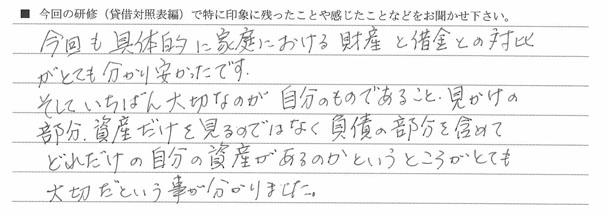 ■ 今回の研修（貸借対照表編）で特に印象に残ったことや感じたことなどをお聞かせ下さい。
今回も具体的に家庭における財産と借金との対比
がとても分かり安かったです.
そしていちばん大切なのが自分のものであること、見かけの
部分、資産だけを見るのではなく負債の部分を含めて
どれだけの自分の資産があるのかというところがとても
大切だという事が分かりました。